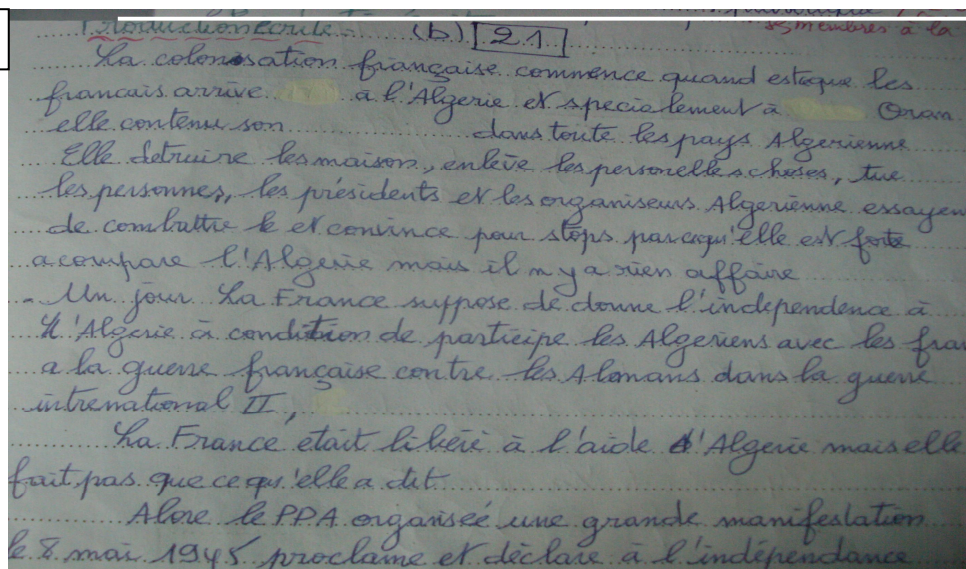 Production écrite - (b) 21
se membres à la
La colonisation française commence quand estoque les
francais arrive à l'Algerie et specialement à Oran
elle contenu son dans toute les pays Algerienne
Elle detruire les maison, enlève les personelles choses, tue
les personnes, les présidents et les organiseurs Algerienne essayen
de combattre le et convince pour stops parcequ'elle est forte
a compare l'Algerie mais il n y a rien affaire
- Un jour La France suppose de donne l'independence à
L'Algerie à condition de participe les Algeriens avec les fran
a la guerre française contre les Alomans dans la guerre
intrenational II,
La France était libéré à l'aide d'Algerie mais elle
fait pas que ce qu'elle a dit
Alore le PPA organiseé une grande manifestation
le 8 mai 1945 proclame et déclare à l'indépendance